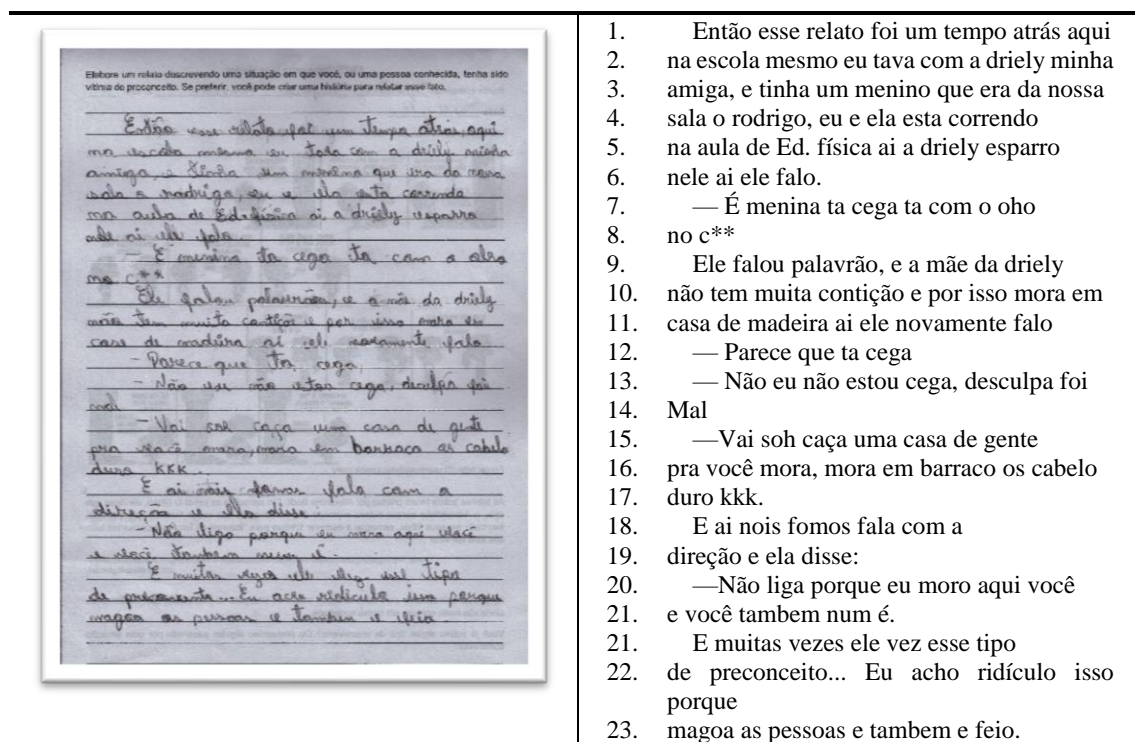 Elabore um relato descrevendo uma situação em que você, ou uma pessoa conhecida, tenha sido
vítima de preconceito. Se preferir, você pode criar uma história para relatar esse fato.
Então esse relato foi um tempo atrás, aqui
na escola mesmo eu tava com a driely minha
amiga, e tinha um menino que era da nossa
sala o rodrigo, eu e ela esta correndo
na aula de Ed. física ai a driely esparro
nele ai ele falo.
- É menina ta cega ta com o oho
no c**
Ele falou palavrão, e a mãe da driely
não tem muita contiçõe e por isso mora em
casa de madeira ai ele novamente falo
- Parece que ta cega,
- Não eu não estou cega, desculpa foi
mal
- Vai soh caça uma casa de gente
pra você mora, mora em barraco os cabelo
duro kkk...
E ai nois fomos fala com a
direção e ela disse:
- Não liga porque eu moro aqui você
e você tambem num é.
E muitas vezes ele vez esse tipo
de preconceito... Eu acho ridículo isso porque
magoa as pessoas e tambem e feio.
1. Então esse relato foi um tempo atrás aqui
2. na escola mesmo eu tava com a driely minha
3. amiga, e tinha um menino que era da nossa
4. sala o rodrigo, eu e ela esta correndo
5. na aula de Ed. física ai a driely esparro
6. nele ai ele falo.
7. — É menina ta cega ta com o oho
8. no c**
9. Ele falou palavrão, e a mãe da driely
10. não tem muita contição e por isso mora em
11. casa de madeira ai ele novamente falo
12. — Parece que ta cega
13. — Não eu não estou cega, desculpa foi
14. Mal
15. —Vai soh caça uma casa de gente
16. pra você mora, mora em barraco os cabelo
17. duro kkk.
18. E ai nois fomos fala com a
19. direção e ela disse:
20. —Não liga porque eu moro aqui você
21. e você tambem num é.
21. E muitas vezes ele vez esse tipo
22. de preconceito... Eu acho ridículo isso
porque
23. magoa as pessoas e tambem e feio.